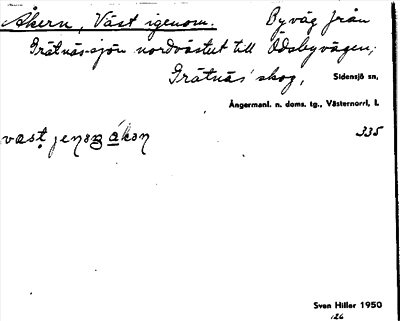 Åkern, Väst igenom. Byväg från
Grätnässjön nordvästut till Ödsbyvägen,
Grätnäs skog, Sidensjö sn,
Ångermanl. n. doms. tg., Västernorrl, l.
335
Sven Hiller 1950
126